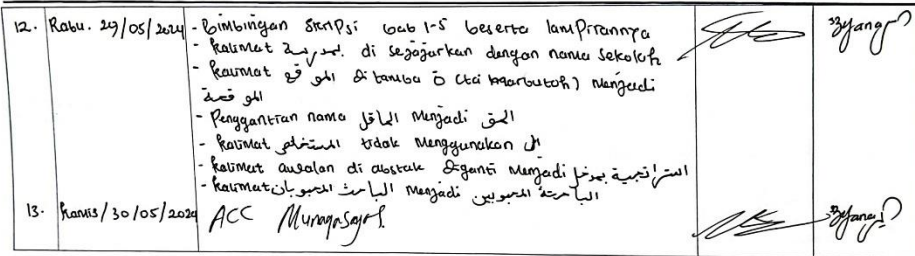 12. Rabu. 29/05/2024 - Bimbingan skripsi bab 1-5 beserta lampirannya
- kalimat بمدرسة. di sejajarkan dengan nama sekolah
- kalimat الموقع di tamba ة (ta marbutoh) menjadi
الموقعة
- Penggantian nama الماقل menjadi المق
- kalimat المستخلص tidak menggunakan ال
- kalimat awalan di abstak diganti menjadi استراتجية بمدخل
- kalimat الباحث المحبوبان menjadi الباحثة المحبوبين
13. Kamis/30/05/2024 ACC Munaqasyah.